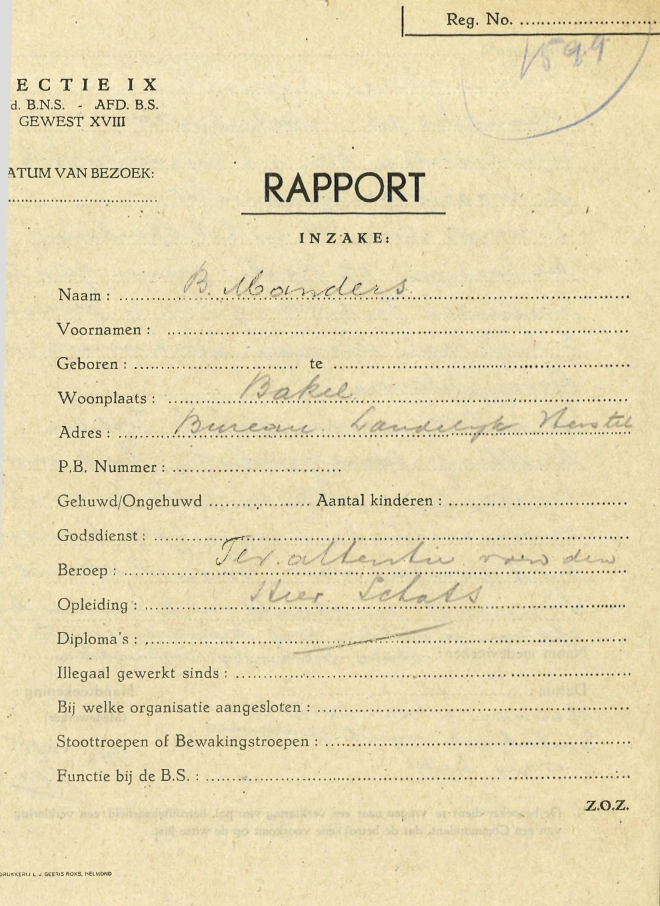 Reg. No. ..........................
1599
ECTIE IX
d. B.N.S. - AFD. B.S.
GEWEST XVIII
ATUM VAN BEZOEK:
RAPPORT
INZAKE:
Naam : B. Manders
Voornamen :
Geboren : .............................. te ..............................
Woonplaats : Bakel
Adres : Bureau Landelijk Herstel
P.B. Nummer :
Gehuwd/Ongehuwd .................. Aantal kinderen :
Godsdienst :
Ter attentie voor den
Beroep :
Heer Schats
Opleiding :
Diploma's :
Illegaal gewerkt sinds :
Bij welke organisatie aangesloten :
Stoottroepen of Bewakingstroepen :
Functie bij de B.S. :
Z.O.Z.
DRUKKERIJ L. J. GEERIS ROXS, HELMOND